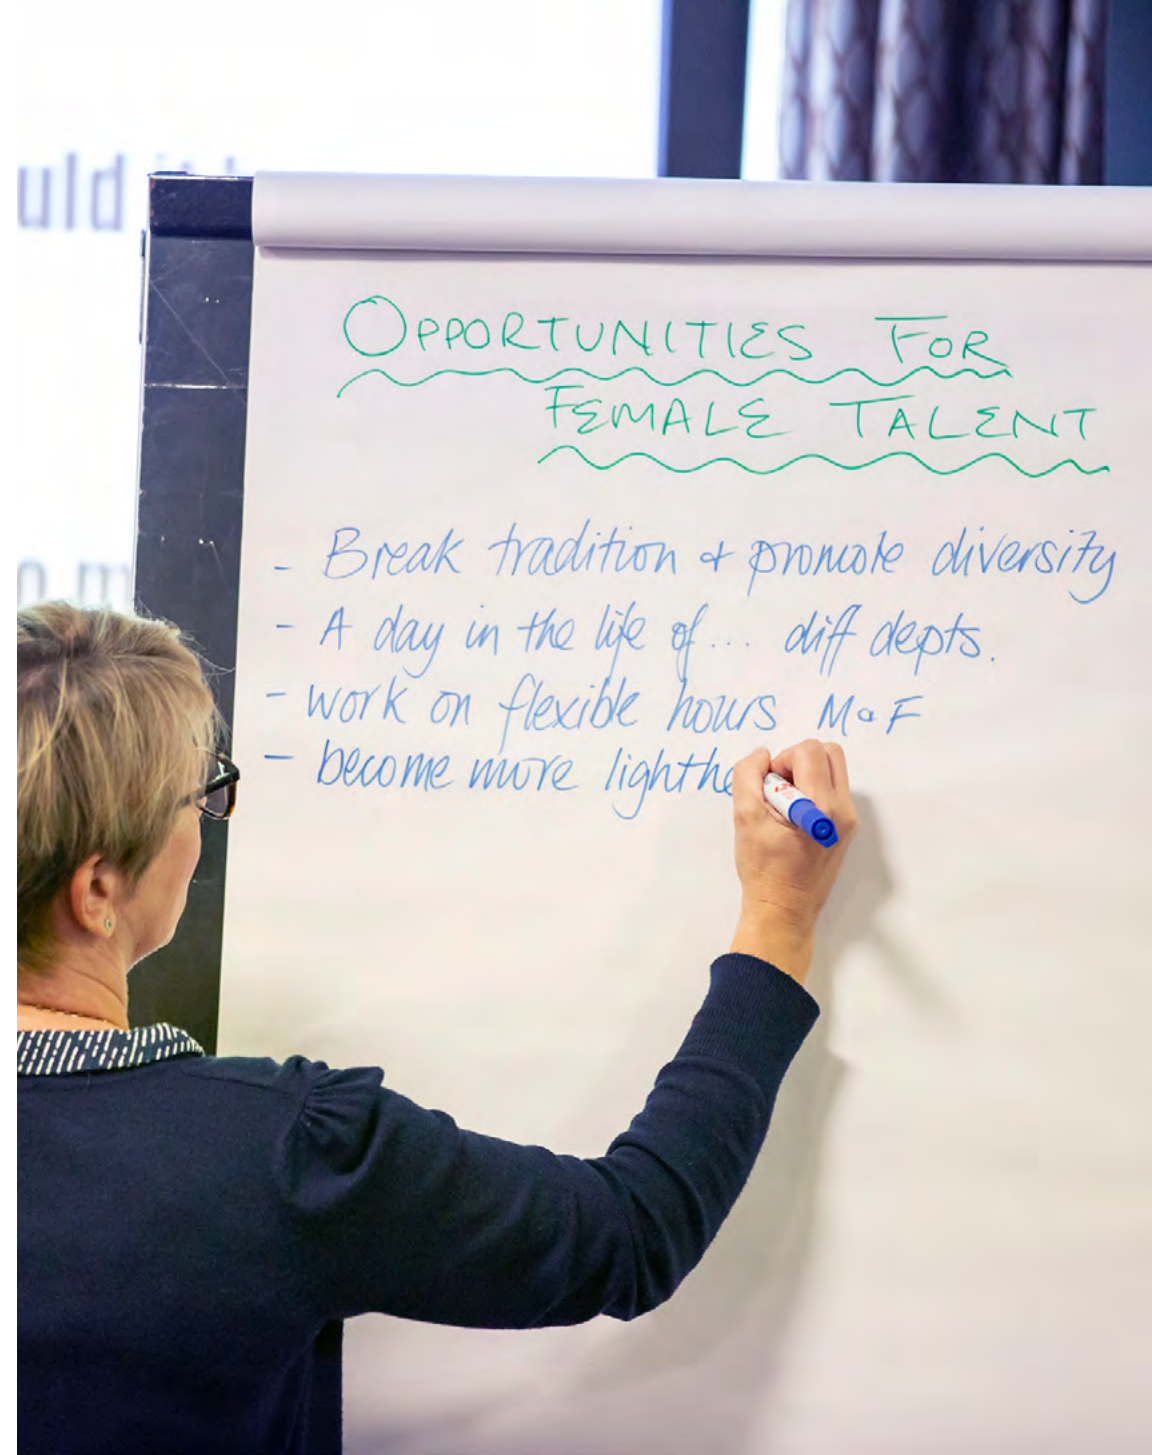 uld it
OPPORTUNITIES FOR
FEMALE TALENT
- Break tradition & promote diversity
- A day in the life of... diff depts.
- work on flexible hours M & F
- become more lighthe